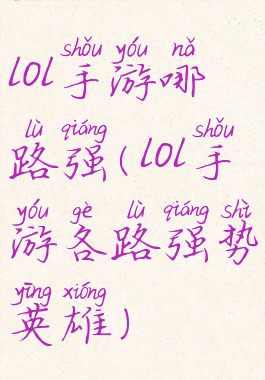 shǒu yóu nǎ
lol手游哪
lù qiáng shǒu
路强(lol手
yóu gè lù qiáng shì
游各路强势
yīng xióng
英雄)